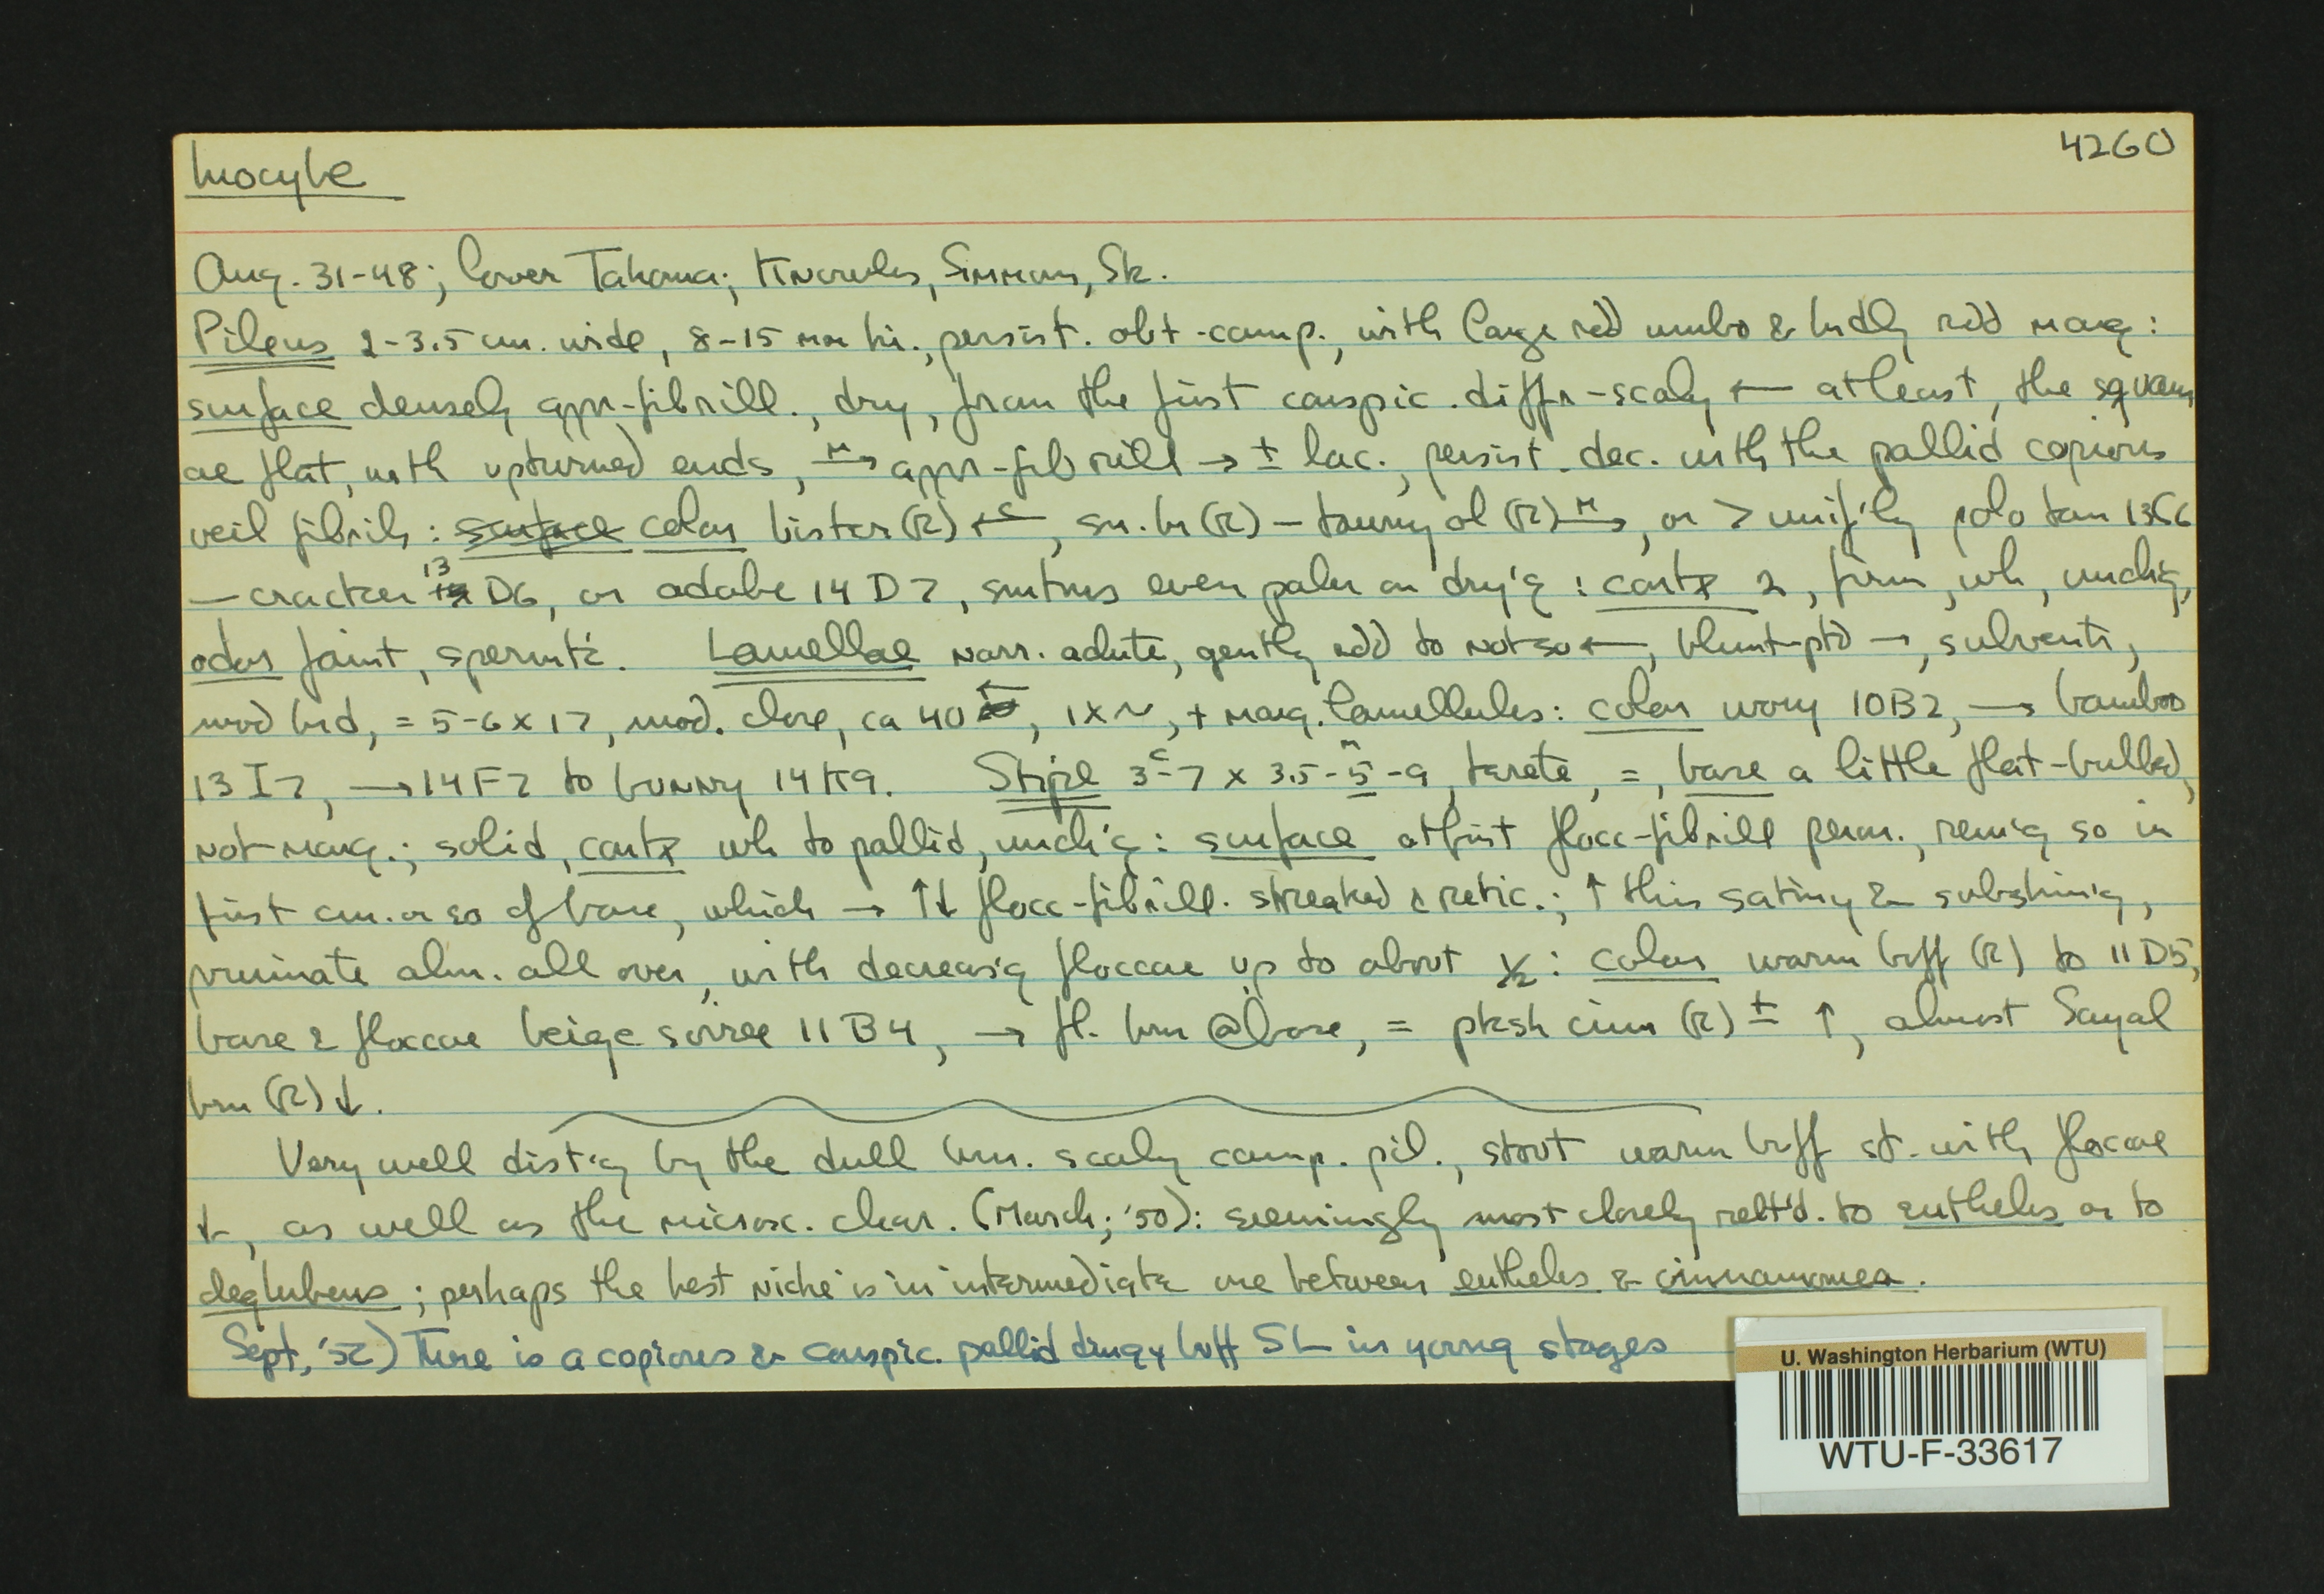 Inocybe
4260
Aug. 31-48; lower Tahoma; Knowles, Simmons, Sk.
Pileus 2-3.5 cm. wide, 8-15 mm hi., persist. obt-camp., with large rdd umbo & brdly rdd marg:
surface densely appr-fibrill., dry, from the first conspic. diffr-scaly ← at least, the squam
ae flat, with upturned ends, M→ appr-fibrill → ± lac., persist. dec. with the pallid copious
veil fibrils: surface color bister (R) ←C, sn. br (R) - tawny ol (R) M→, or > unif'ly polo tan 13C6
- cracker 13 D6, or adobe 14 D7, smtms even paler on dry'g: cortx 2, firm, wh, unchg,
odor faint, spermt'c. Lamellae narr. adnte, gently rdd to not so ←, blunt-ptd →, subventr,
mod brd, = 5-6 x 1>, mod. close, ca 40 ←, 1x~, + marg. lamellules: color ivory 10B2, → bamboo
13 I7, → 14F7 to bunny 14K9. Stipe 3-7 x 3.5-5-9, terete, =, base a little flat-bulbed,
not marg.; solid, cortx wh to pallid, unch'g: surface at first flocc-fibrill perm., rem'g so in
first cm. or so of base, which → ↑↓ flocc-fibrill. streaked & retic.; ↑ this satiny & subshin'g,
pruinate alm. all over, with decreas'g floccae up to about 1/2: color warm buff (R) to 11 D5,
base & floccae beige soiree 11 B4, → ft. brn @ base, = pksh cinn (R) ± ↑, almost Sayal
brn (R) ↓.
Very well dist'g by the dull brn. scaly camp. pil., stout warm buff st. with floccae
↓, as well as the microsc. char. (March; '50): seemingly most closely relt'd. to eutheles or to
deglubens; perhaps the best niche is in intermediate one between eutheles & cinnamomea.
Sept, '52) There is a copious & conspic. pallid dingy buff SL in young stages
U. Washington Herbarium (WTU)
WTU-F-33617